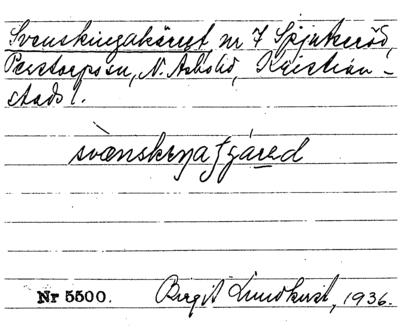 Svenskingakärret, nr 7 Spjutseröd,
Perstorps sn, N. Åsbo hd, Kristian-
stads l.
Nr 5500. Birgit Lundkvist, 1936.